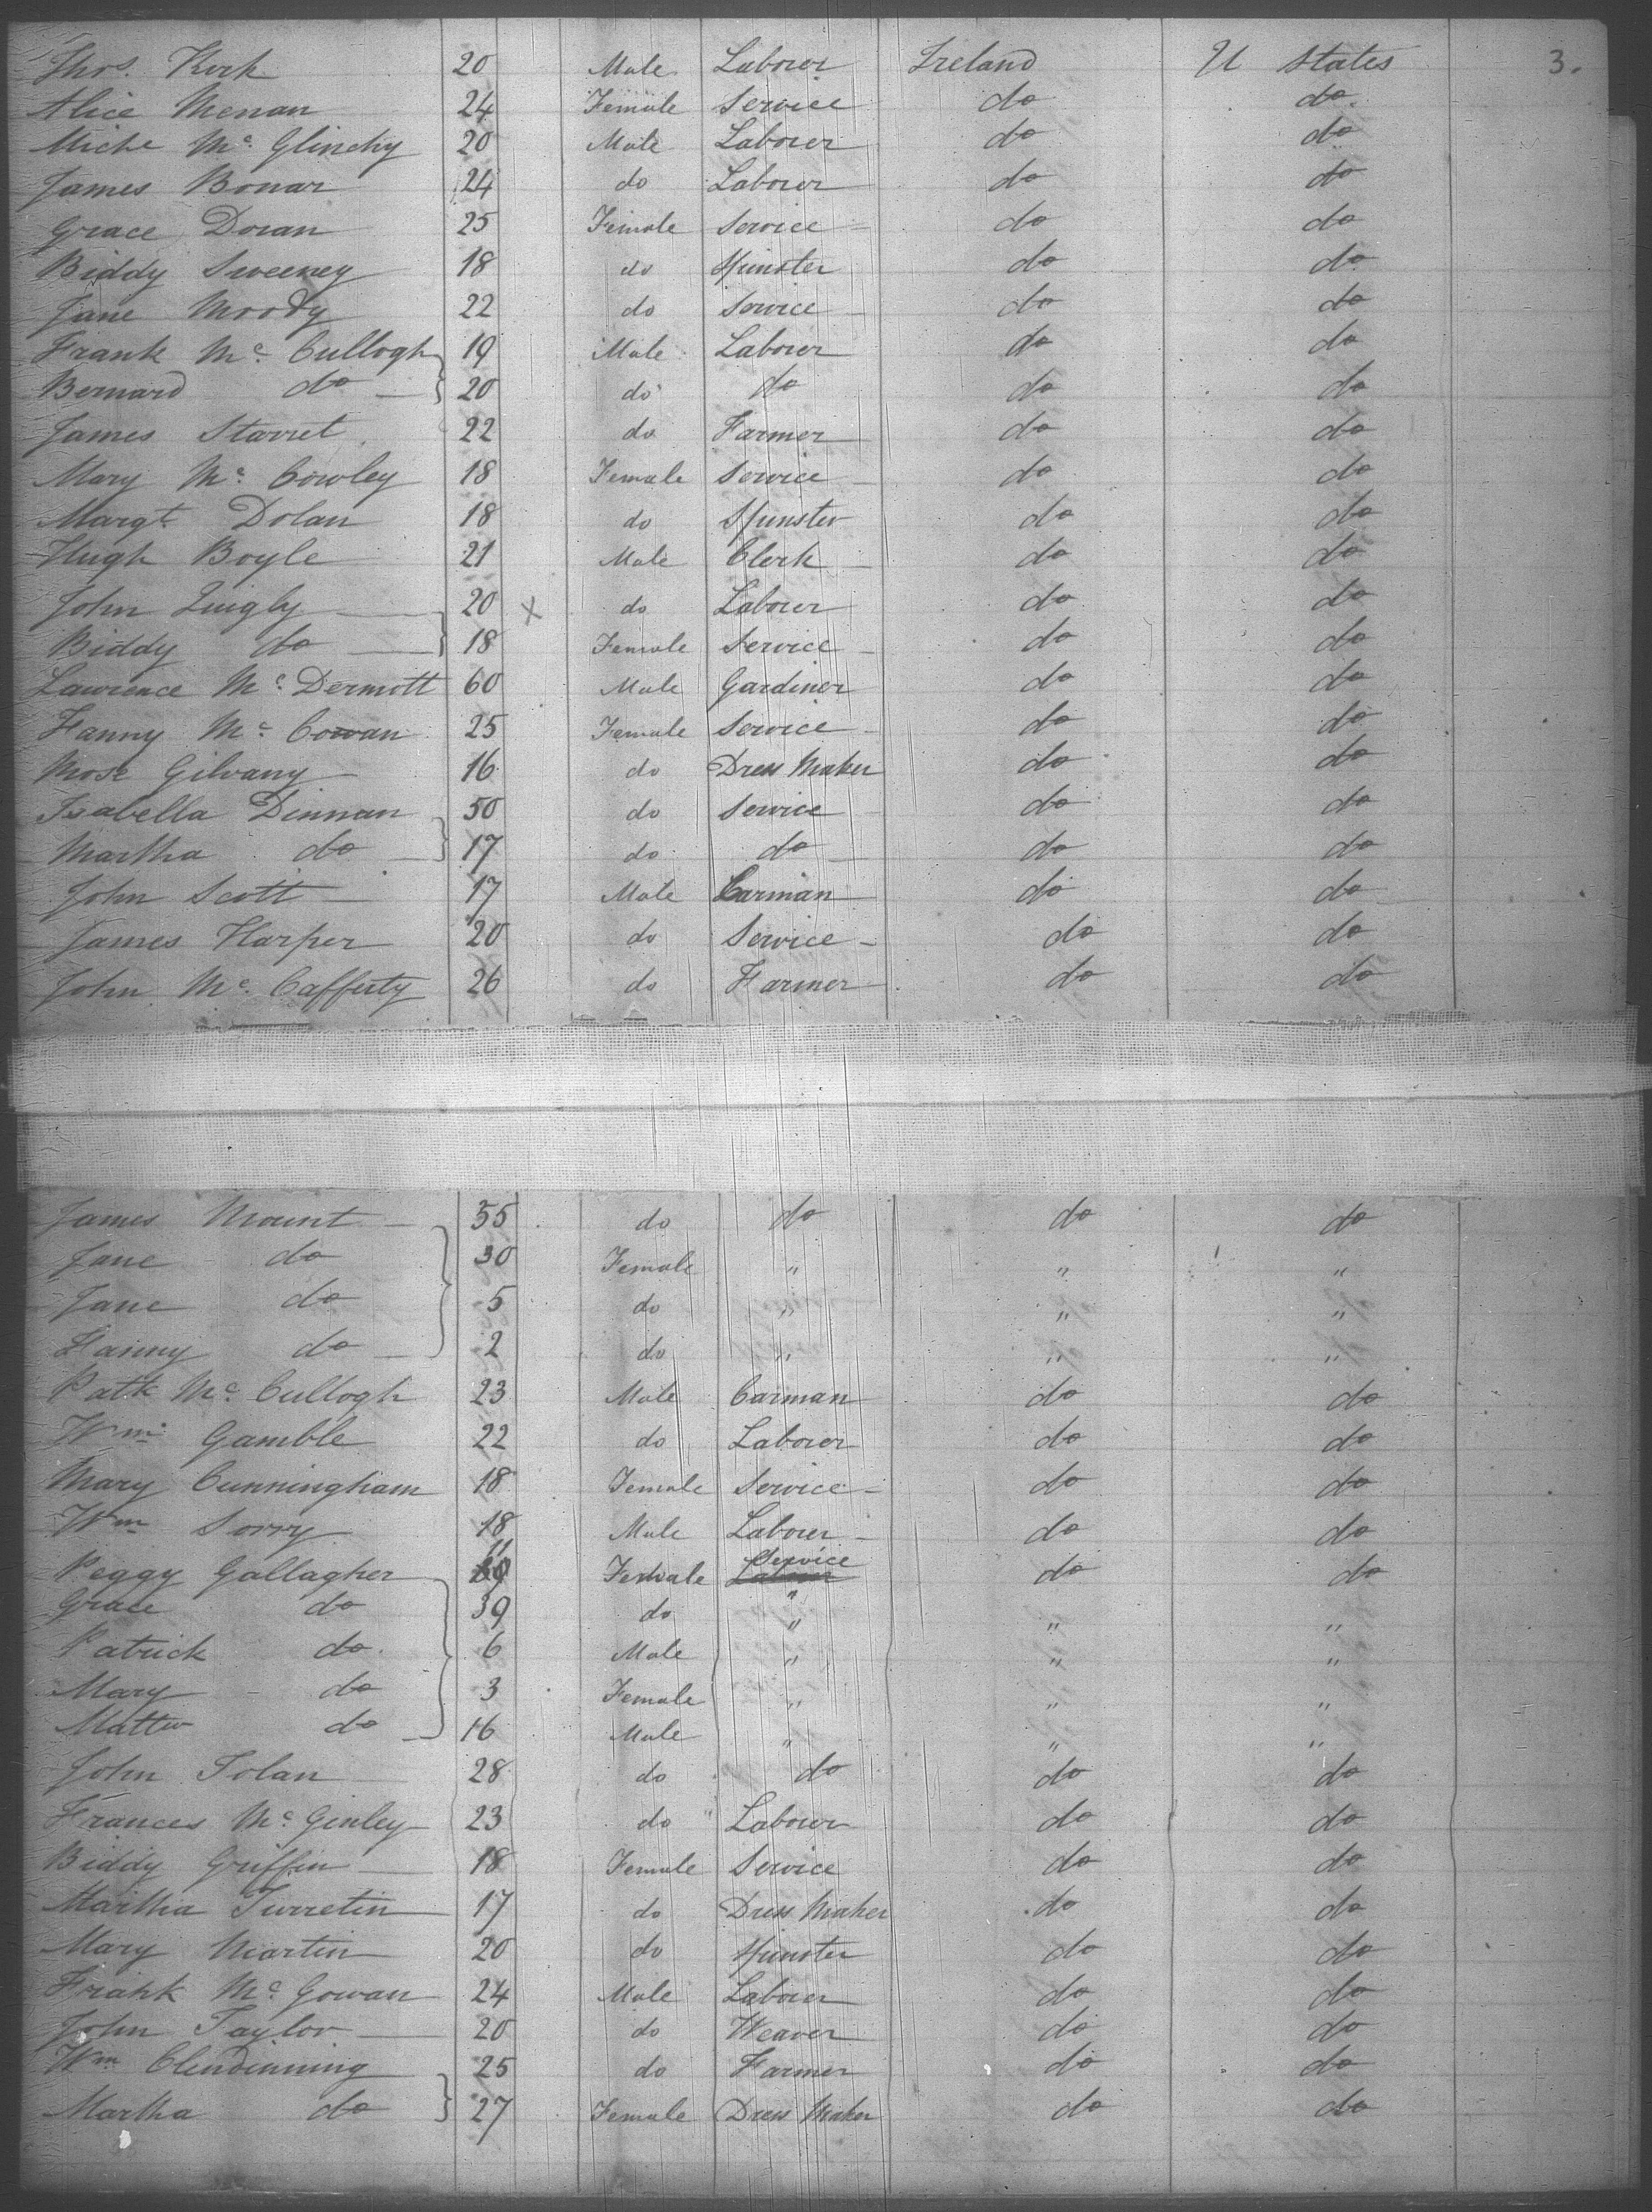 Thos. Kirk 20 Male Laborer Ireland U States 3.
Alice Menan 24 Female Service do do
Miche Mc Glinchy 20 Male Laborer do do
James Bonar 24 do Laborer do do
Grace Doran 25 Female Service do do
Biddy Sweeney 18 do Spinster do do
Jane Moody 22 do Service do do
Frank Mc Cullogh 19 Male Laborer do do
Bernard do 20 do do do do
James Starret 22 do Farmer do do
Mary Mc Cowley 18 Female Service do do
Margt Dolan 18 do Spinster do do
Hugh Boyle 21 Male Clerk do do
John Quigly 20 x do Laborer do do
Biddy do 18 Female Service do do
Lawrence Mc Dermott 60 Male Gardiner do do
Fanny Mc Cowan 25 Female Service do do
Rose Gilvany 16 do Dress Maker do do
Isabella Dinnan 50 do Service do do
Martha do 17 do do do do
John Scott 17 Male Carman do do
James Harper 20 do Service do do
John Mc Cafferty 26 do Farmer do do
James Mount 55 do do do do
Jane do 30 Female " " "
Jane do 5 do " " "
Fanny do 2 do " " "
Patk Mc Cullogh 23 Male Carman do do
Wm Gamble 22 do Laborer do do
Mary Cunningham 18 Female Service do do
Wm Sorry 18 Male Laborer do do
Peggy Gallagher Female Service do do
Grace do 39 do " " "
Patrick do 6 Male " " "
Mary do 3 Female " " "
Mattw do 16 Male " " "
John Tolan 28 do do do do
Frances Mc Ginley 23 do Laborer do do
Biddy Griffin 18 Female Service do do
Martha Turretin 17 do Dress Maker do do
Mary Martin 20 do Spinster do do
Frank Mc Gowan 24 Male Laborer do do
John Taylor 20 do Weaver do do
Wm Clendinning 25 do Farmer do do
Martha do 27 Female Dress Maker do do